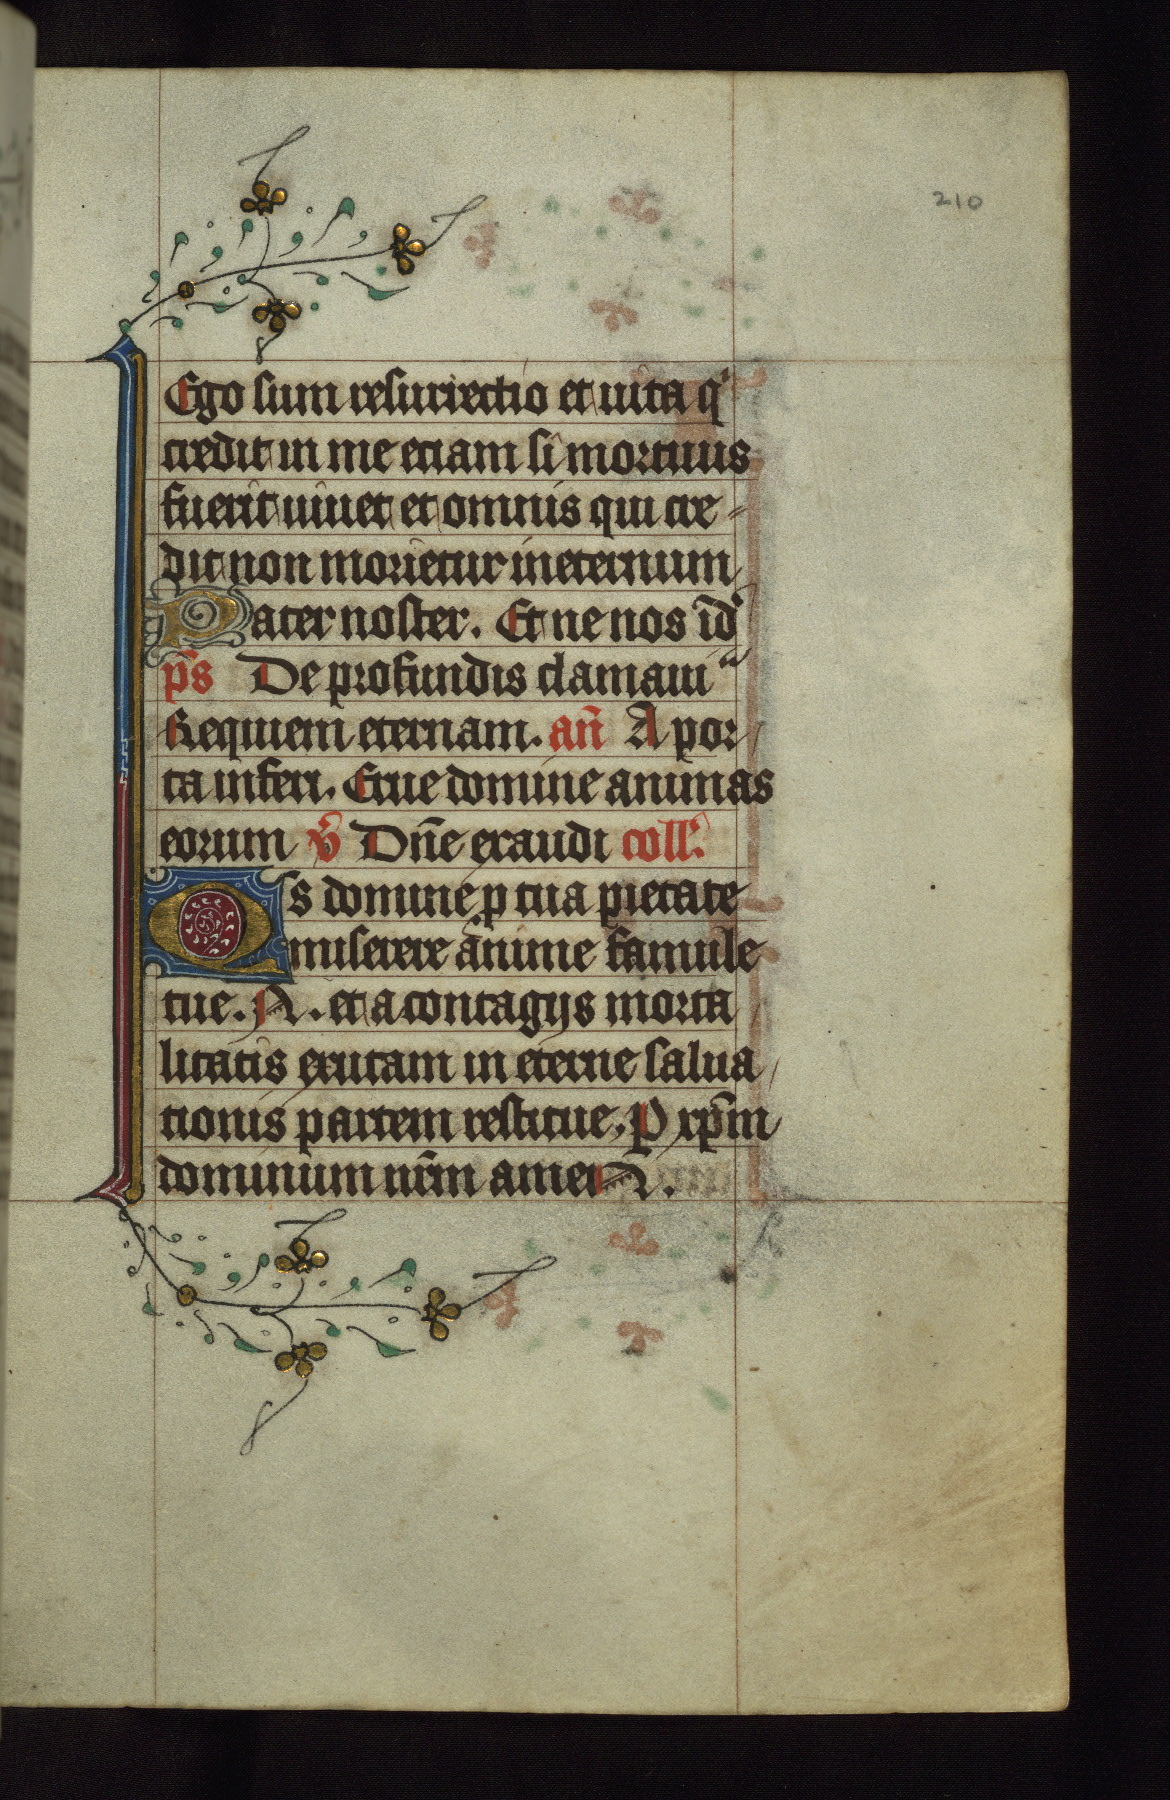 210
Ego sum resurrectio et uita q
credit in me etiam si mortuus
fuerit uiuet et omnis qui cre-
dit non morietur in eternum
Pater noster. Et ne nos īd
ps̄ De profundis clamaui
Requiem eternam. an̄ A por
ta inferi. Erue domine animas
eorum v̄ Dn̄e exaudi coll'.
Qs domine p tua pietate
miserere anime famule
tue. N. et a contagijs morta
litatis exutam in eterne salua
tionis partem restitue. P xp̄m
dominum nr̄m amen.